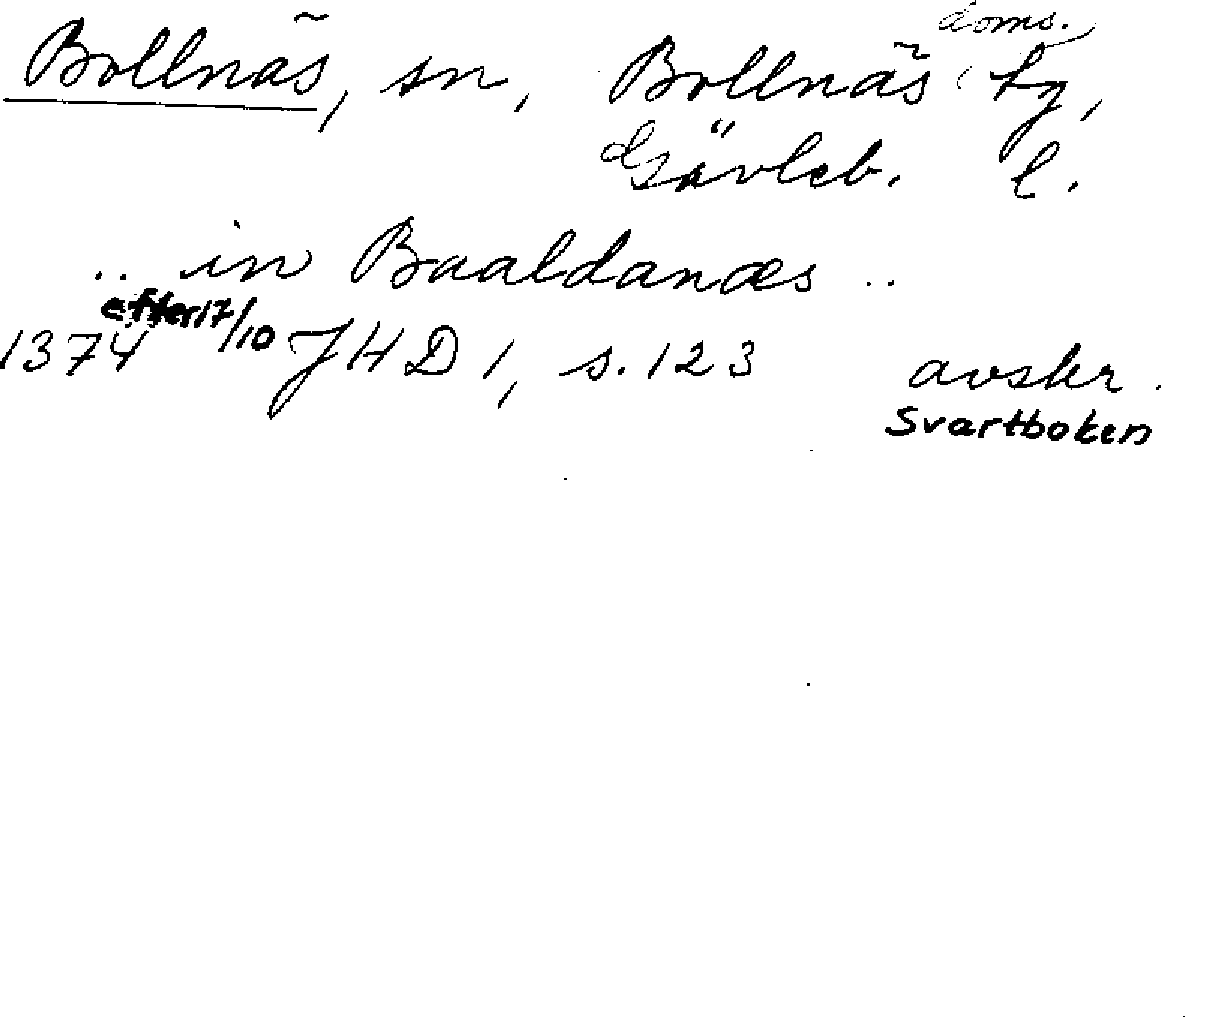 Bollnäs, sn, Bollnäs doms. tg,
Gävleb. l.
.. in Baaldanæs ..
1374 efter 17/10 JHD 1, s. 123 avskr.
Svartboken